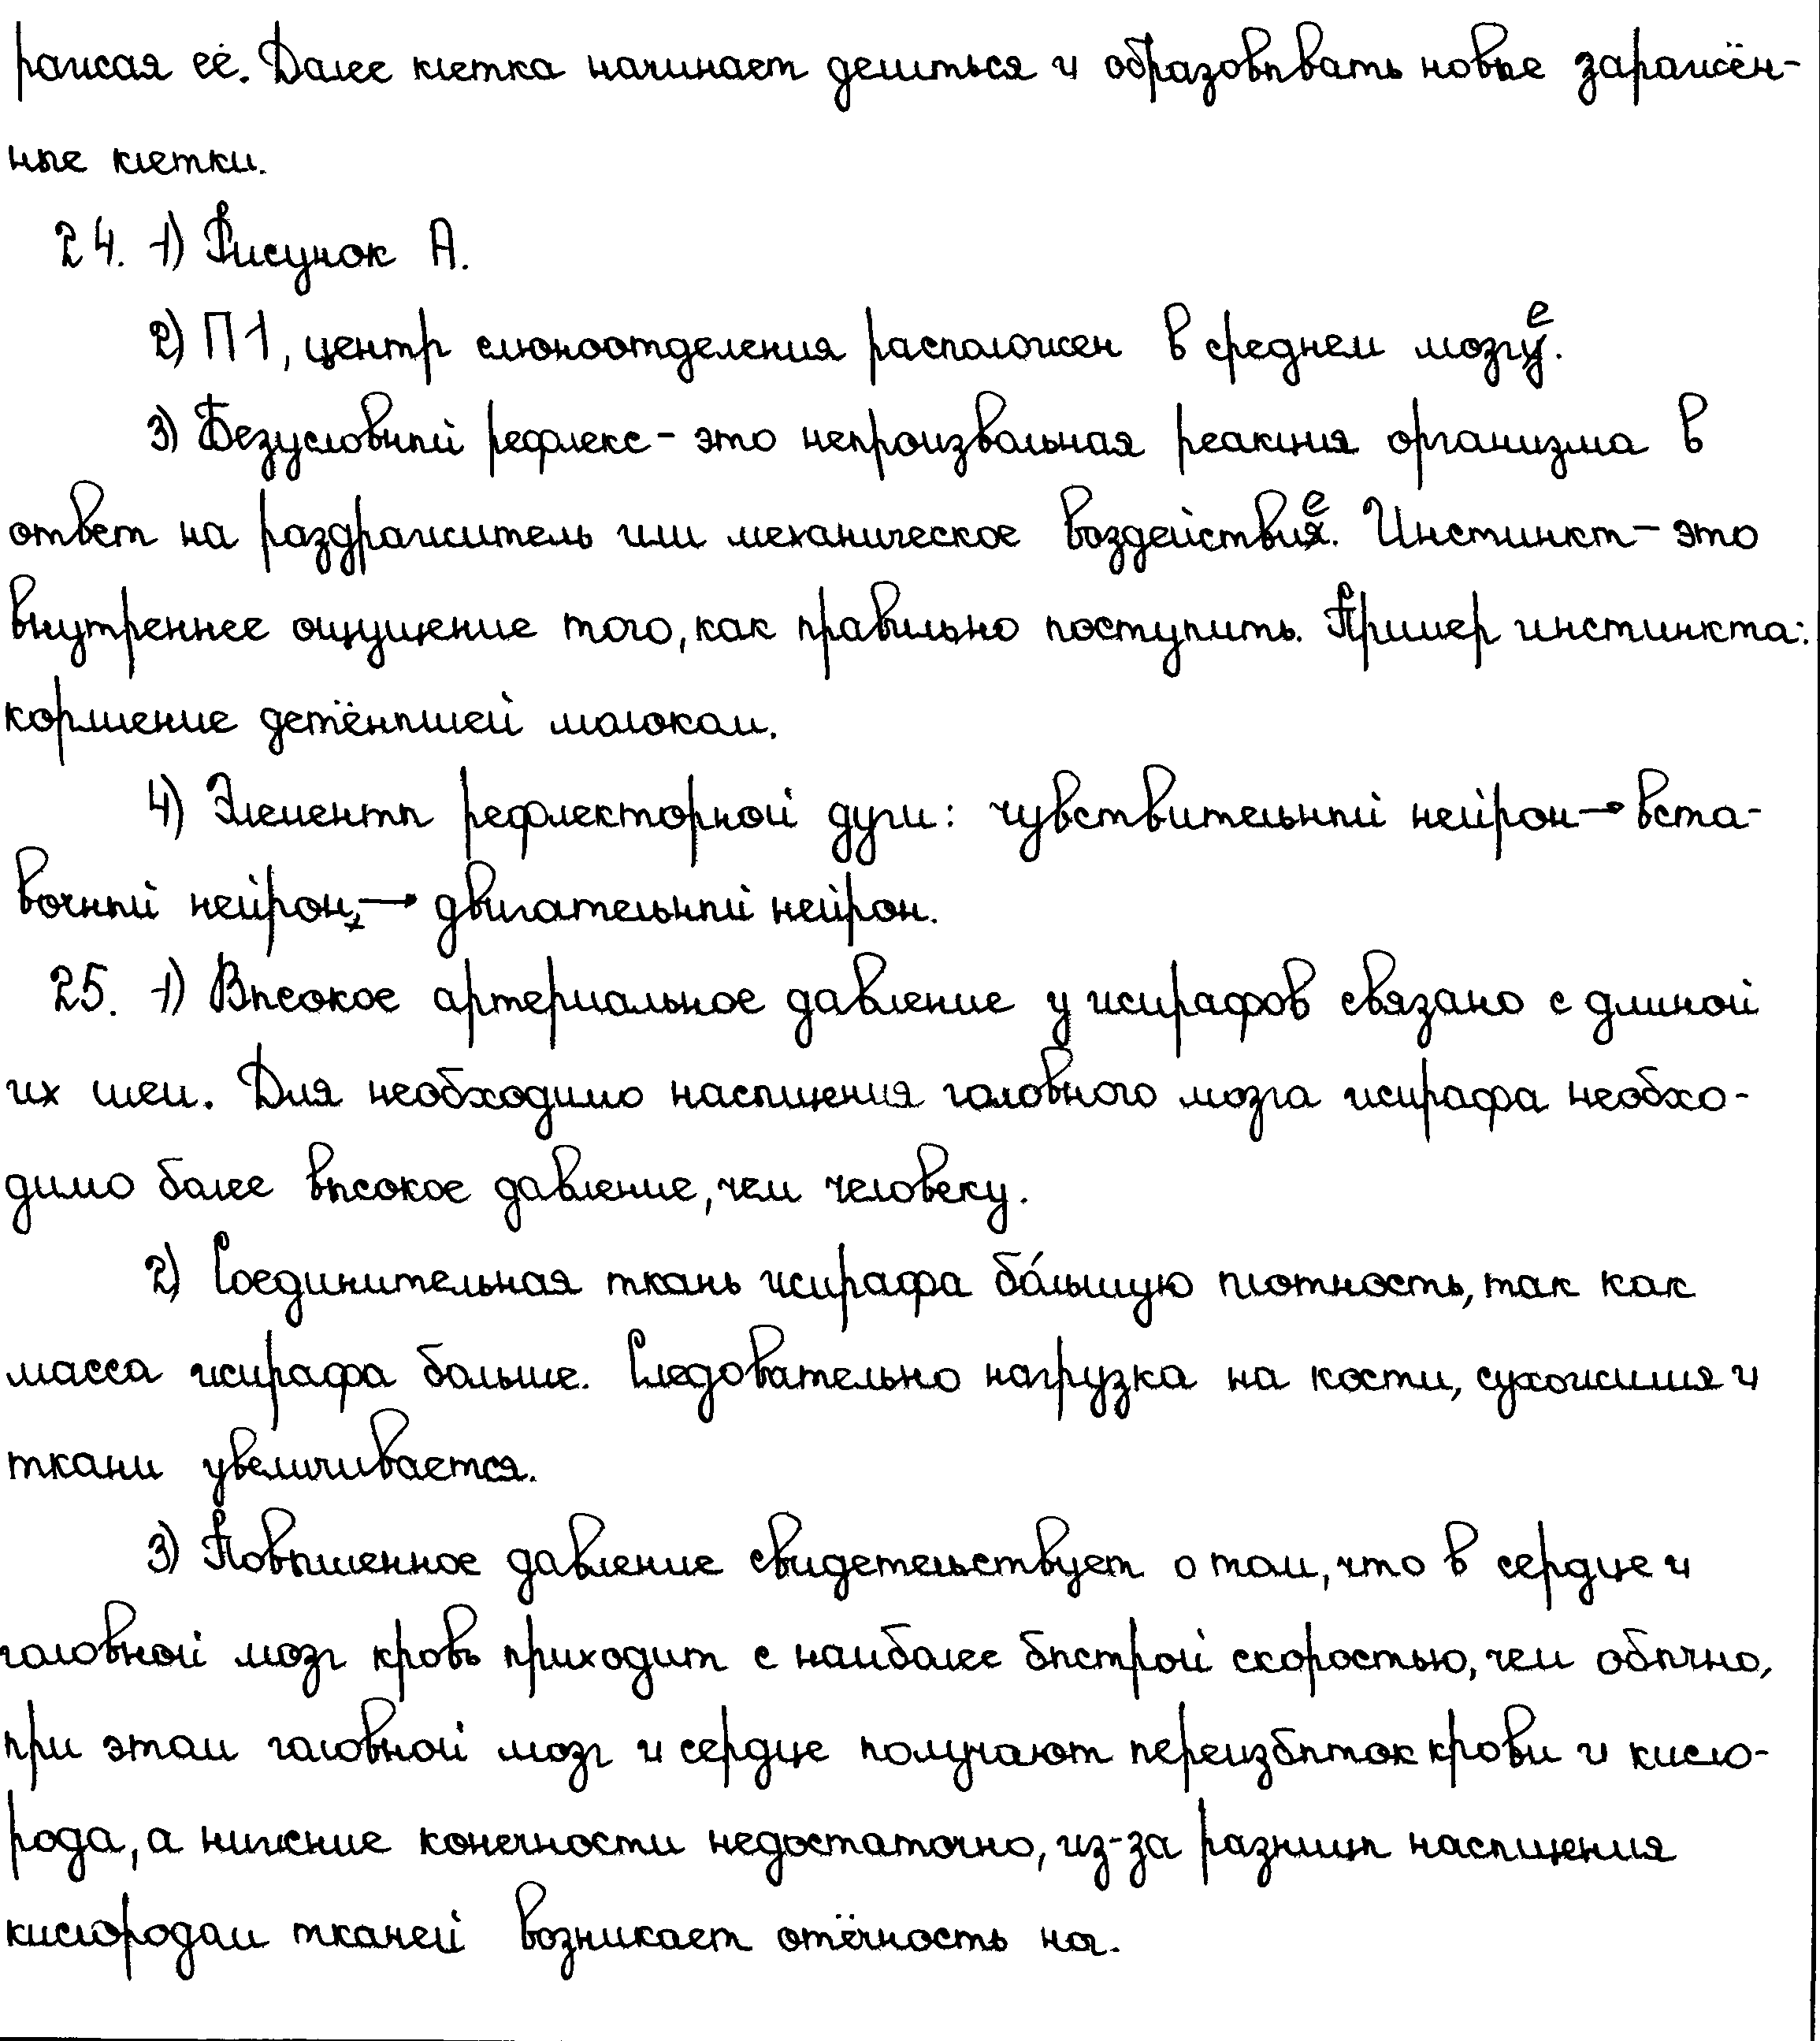 ражая её. Далее клетка начинает делиться и образовывать новые заражён-
ные клетки.
24. 1) Рисунок А.
2) П1, центр слюноотделения расположен в среднем мозге.
3) Безусловный рефлекс - это непроизвольная реакция организма в
ответ на раздражитель или механическое воздействие. Инстинкт - это
внутреннее ощущение того, как правильно поступить. Пример инстинкта:
кормление детёнышей молоком.
4) Элементы рефлекторной дуги: чувствительный нейрон → вста-
вочный нейрон → двигательный нейрон.
25. 1) Высокое артериальное давление у жирафов связано с длиной
их шеи. Для необходимо насыщения головного мозга жирафа необхо-
димо более высокое давление, чем человеку.
2) Соединительная ткань жирафа бо́льшую плотность, так как
масса жирафа больше. Следовательно нагрузка на кости, сухожилия и
ткани увеличивается.
3) Повышенное давление свидетельствует о том, что в сердце и
головной мозг кровь приходит с наиболее быстрой скоростью, чем обычно,
при этом головной мозг и сердце получают переизбыток крови и кисло-
рода, а нижние конечности недостаточно, из-за разницы насыщения
кислородом тканей возникает отёчность ног.